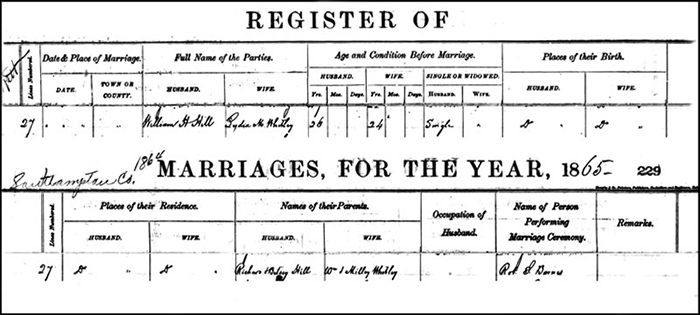 REGISTER OF
Lines Numbered. Date & Place of Marriage. Full Name of the Parties. Age and Condition Before Marriage. Places of their Birth.
HUSBAND. WIFE. SINGLE OR WIDOWED.
DATE. TOWN OR COUNTY. HUSBAND. WIFE. Yrs. Mos. Days. Yrs. Mos. Days. HUSBAND. WIFE. HUSBAND. WIFE.
27 " " " William H Hill Lydia M Whitley 26 24 Single " D " D "
Southampton Co. 1864 MARRIAGES, FOR THE YEAR, 1865 229
Lines Numbered. Places of their Residence. Names of their Parents. Occupation of Husband. Name of Person Performing Marriage Ceremony. Remarks.
HUSBAND. WIFE. HUSBAND. WIFE.
27 D " D " Richard & Betsy Hill Wm & Milly Whitley " Rob S Barnes